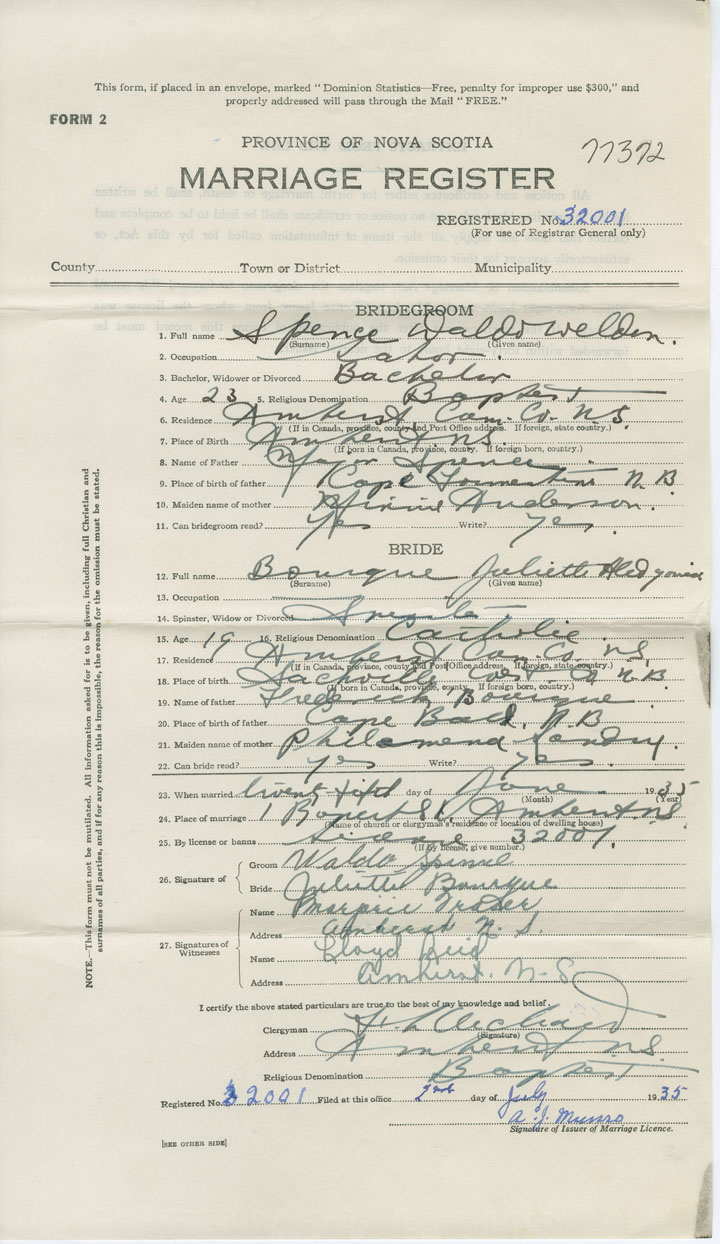 This form, if placed in an envelope, marked "Dominion Statistics—Free, penalty for improper use $300," and
properly addressed will pass through the Mail "FREE."
FORM 2
PROVINCE OF NOVA SCOTIA
77372
MARRIAGE REGISTER
REGISTERED No. 32001
(For use of Registrar General only)
County Town or District Municipality
BRIDEGROOM
1. Full name Spence Waldo Weldon.
(Surname) (Given name)
2. Occupation Labor.
3. Bachelor, Widower or Divorced Bachelor
4. Age 23 5. Religious Denomination Baptist
6. Residence Amherst Cum. Co. N.S.
(If in Canada, province, county and Post Office address. If foreign, state country.)
7. Place of Birth Amherst N.S.
(If born in Canada, province, county. If foreign born, country.)
8. Name of Father Major Spence
9. Place of birth of father Cape Tormentine N.B
10. Maiden name of mother Minnie Anderson.
11. Can bridegroom read? Yes Write? Yes.
BRIDE
12. Full name Bourque Juliette
(Surname) (Given name)
13. Occupation
14. Spinster, Widow or Divorced Spinster
15. Age 19 16. Religious Denomination Catholic
17. Residence Amherst Cum. Co. N.S.
(If in Canada, province, county and Post Office address. If foreign, state country.)
18. Place of birth Sackville West. Co. N.B
(If born in Canada, province, county. If foreign born, country.)
19. Name of father Frederick Bourque
20. Place of birth of father Cape Bald, N.B
21. Maiden name of mother Philomena Landry.
22. Can bride read? Yes Write? Yes.
23. When married twenty-fifth day of June 1935
(Month) (Year)
24. Place of marriage 1 Rupert St. Amherst N.S
(Name of church or clergyman's residence or location of dwelling house)
25. By license or banns License 32001.
(If by license, give number.)
26. Signature of
Groom Waldo Spence
Bride Juliette Bourque
27. Signatures of Witnesses
Name Marjorie Trader
Address Amherst N.S.
Name Lloyd Reid
Address Amherst. N-S
I certify the above stated particulars are true to the best of my knowledge and belief.
Clergyman
(Signature)
Address Amherst N.S.
Religious Denomination Baptist
Registered No. 32001 Filed at this office 2nd day of July 1935
A. J. Munro
Signature of Issuer of Marriage Licence.
[SEE OTHER SIDE]
NOTE.—This form must not be mutilated. All information asked for is to be given, including full Christian and
surnames of all parties, and if for any reason this is impossible, the reason for the omission must be stated.